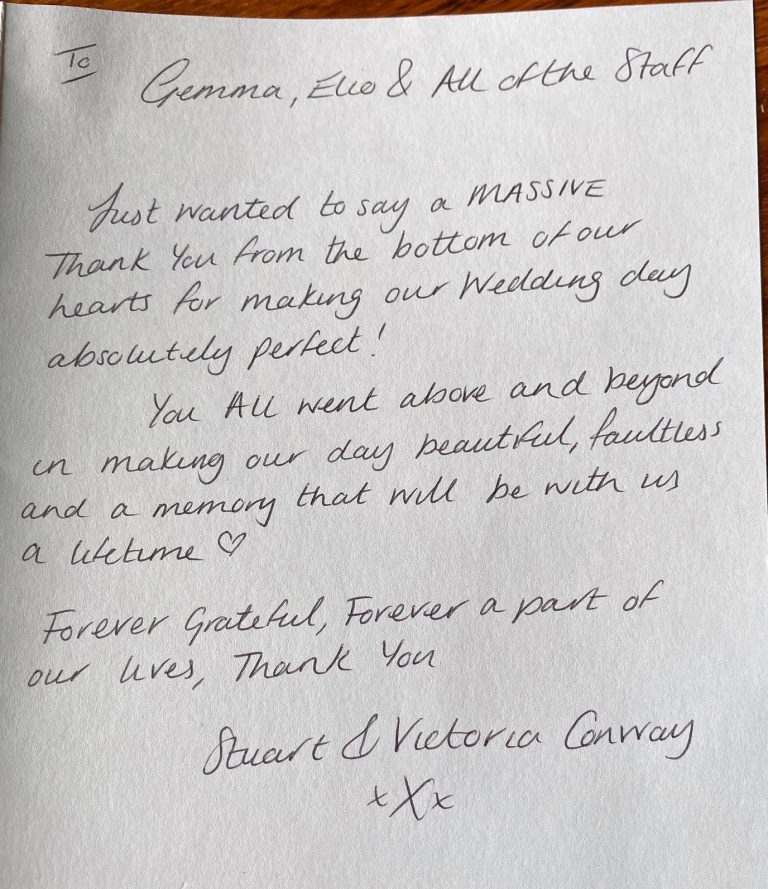 To
Gemma, Elio & All of the Staff
Just wanted to say a MASSIVE
Thank You from the bottom of our
hearts for making our Wedding day
absolutely perfect!
You All went above and beyond
in making our day beautiful, faultless
and a memory that will be with us
a lifetime ♡
Forever Grateful, Forever a part of
our lives, Thank You
Stuart & Victoria Conway
xXx